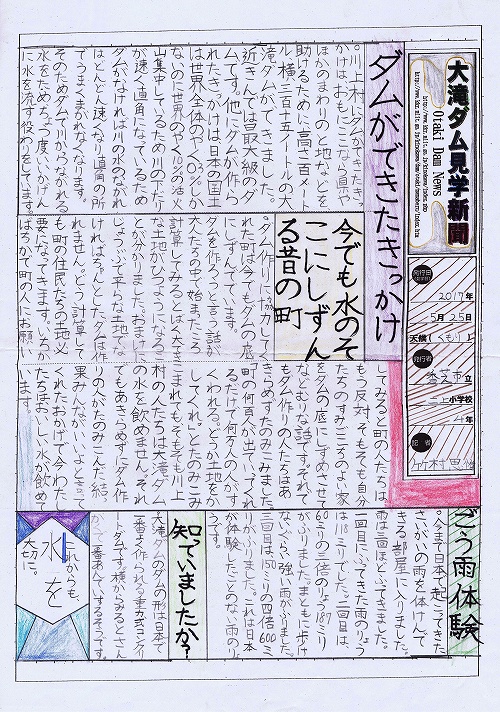 大滝ダム見学新聞
Otaki Dam News
発行日
2017年
5月25日
天候(くもり)
発行者
香芝市立
二上小学校
4年
記者
ダムができたきっかけ
川上村にダムができたきっ
かけは、おもにここなら県や
ほかのまわりの土地などを
助けるために高さ百メート
ル、横三百十五メートルの大
滝ダムができました。
近きんでは最大級のダ
ムです。他にダムが作ら
れたきっかけは日本の国土
は世界全体の
ないのに世界の
山集中しているため川の下たり
が速く直角になっているため
ダムがなければ川の水のながれ
はどんどん速くなり直角の所
でうまくまがれなくなります。
そのためダムで川からながれる
水をためちょう度いいかげん
に水を流す役わりをしています。
今でも水のそ
こにしずん
でる昔の町
ダム作りに協力してく
れた町は今でもダムの底
にしずんでいます。
ダムを作ろうと言う話が
大人たちの中で始まったころ
計算してみるととほうもない大きさ
な土地がひつようになること
が分かりました。おまけに
じょうぶで平らな土地でな
ければちゃんとしたダムは作
れません。どう計算して
も町の住民たちの土地が必
要になってきます。いちか
ばちかで町の人にお願い
してみると町の人たちは
もう反対。そもそも自分
たちのすみごこちのよい家
をダムの底にしずめさせて
などむりな話です。それで
もダム作りの人たちはあ
きらめずたのみこみました。
町の何百人が出ていってくれ
るだけで何万人の人がす
くわれる。どうか土地をか
してくれ。とたのみこみ
ました。でもそもそも川上
村の人たちは大滝ダム
の水を飲めません。それ
でもあきらめずにダム作
りの人がたのみこんだ結
果みんながいいよと言って
くれたおかげで今わたし
たちはおいしい水が飲めて
います。
ごう雨体験
今まで日本で起こってきた
さいがいの雨を体けんで
きる部屋に入りました。
雨は三回ほどふってきました。
一回目にふってきた雨のりょう
は118ミリでした。二回目は、
60ミリの三倍のりょう187ミリ
がふりました。まともに歩け
ないぐらい、強い雨がふりました。
三回目は、150ミリの四倍600ミ
リがふりました。これは日本
が体験したことのない雨のり
ょうです。
知っていましたか？
大滝ダムのダムの形は日本で
一番多く作られる重力式コンクイ
ートダムです。横からみるとさん
かくで一番あんていするそうです。
これからも、
水を
大切に。